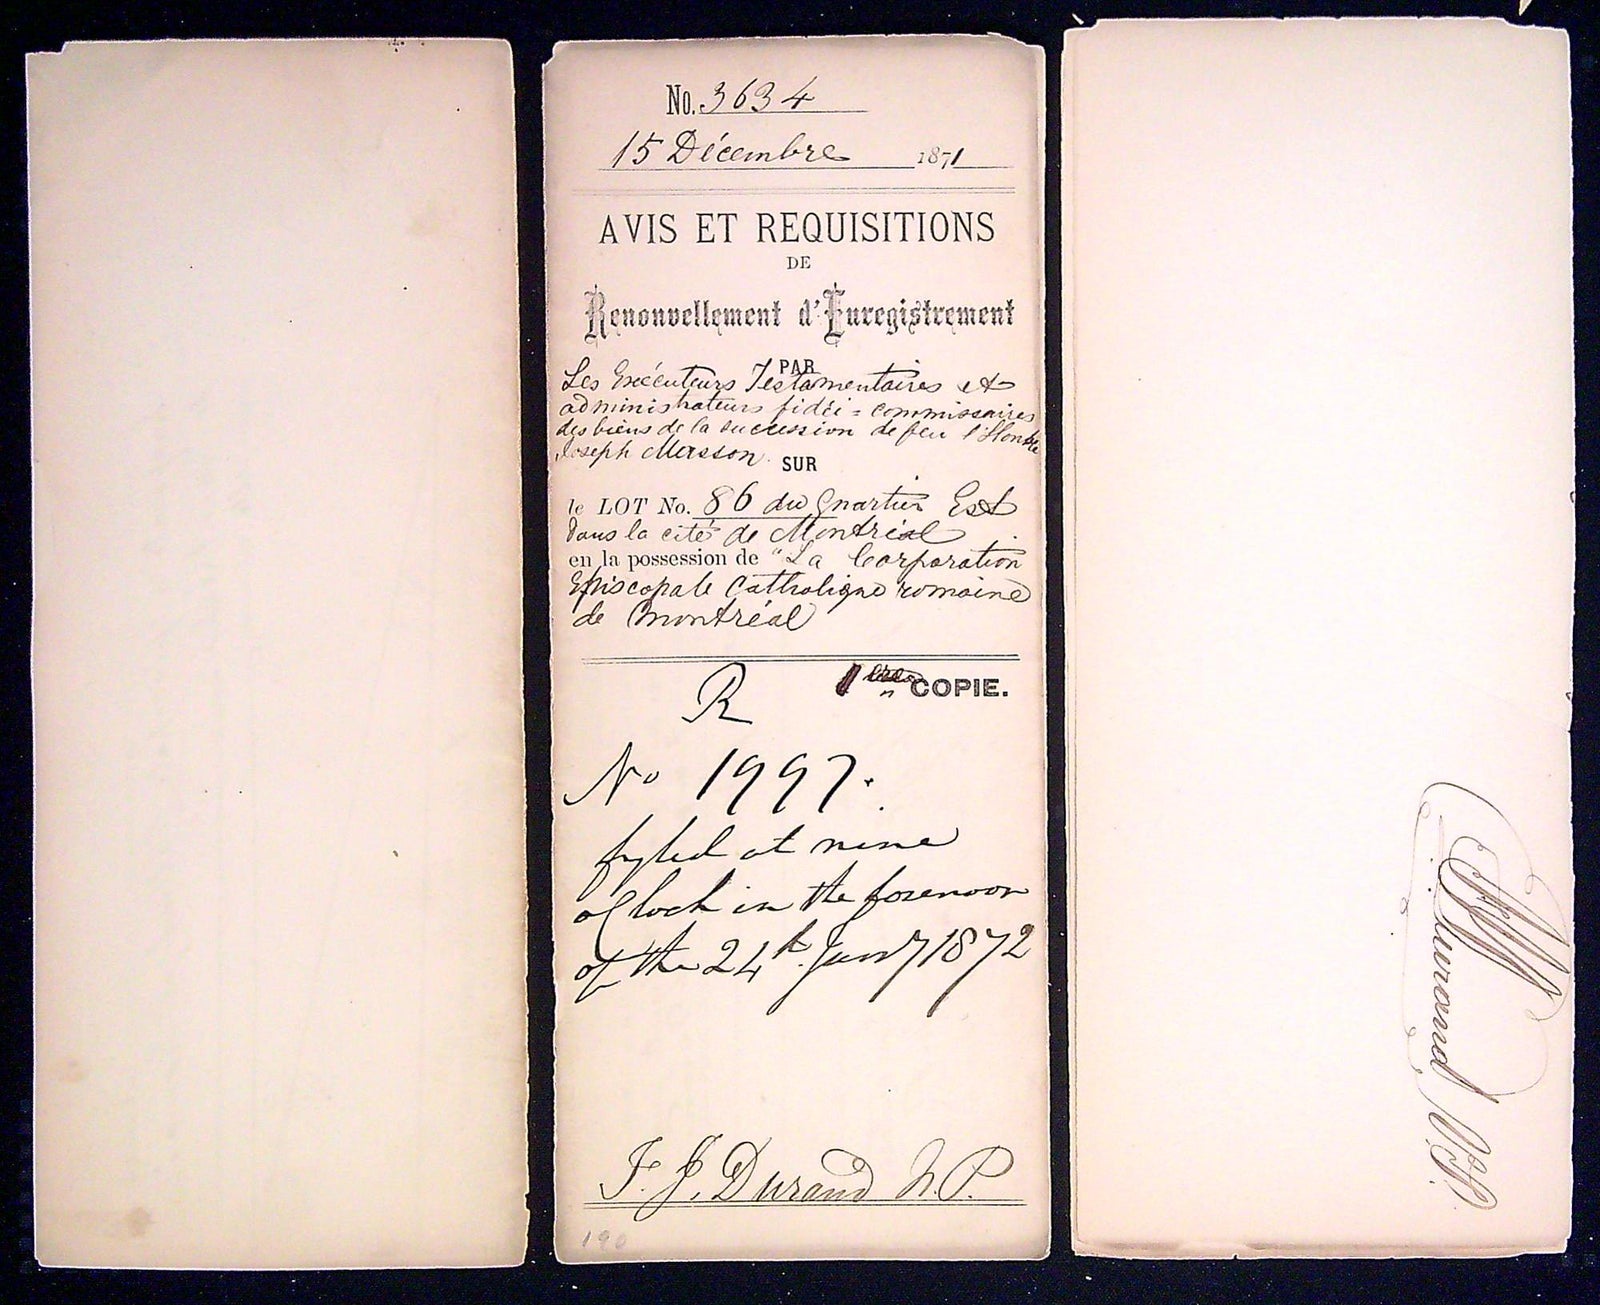 No. 3634
15 Décembre 1871
AVIS ET REQUISITIONS
DE
Renouvellement d'Enregistrement
PAR
Les Exécuteurs Testamentaires et
administrateurs fidéi=commissaires
des biens de la succession de feu l'Honble
Joseph Masson
SUR
le LOT No. 86 du Quartier Est
dans la cité de Montréal
en la possession de "La Corporation
Episcopale Catholique romaine
de Montréal
1ère COPIE.
R
No 1997.
fyled at nine
oClock in the forenoon
of the 24th Jany 1872
F. J. Durand N.P.
190
Durand, N.P.